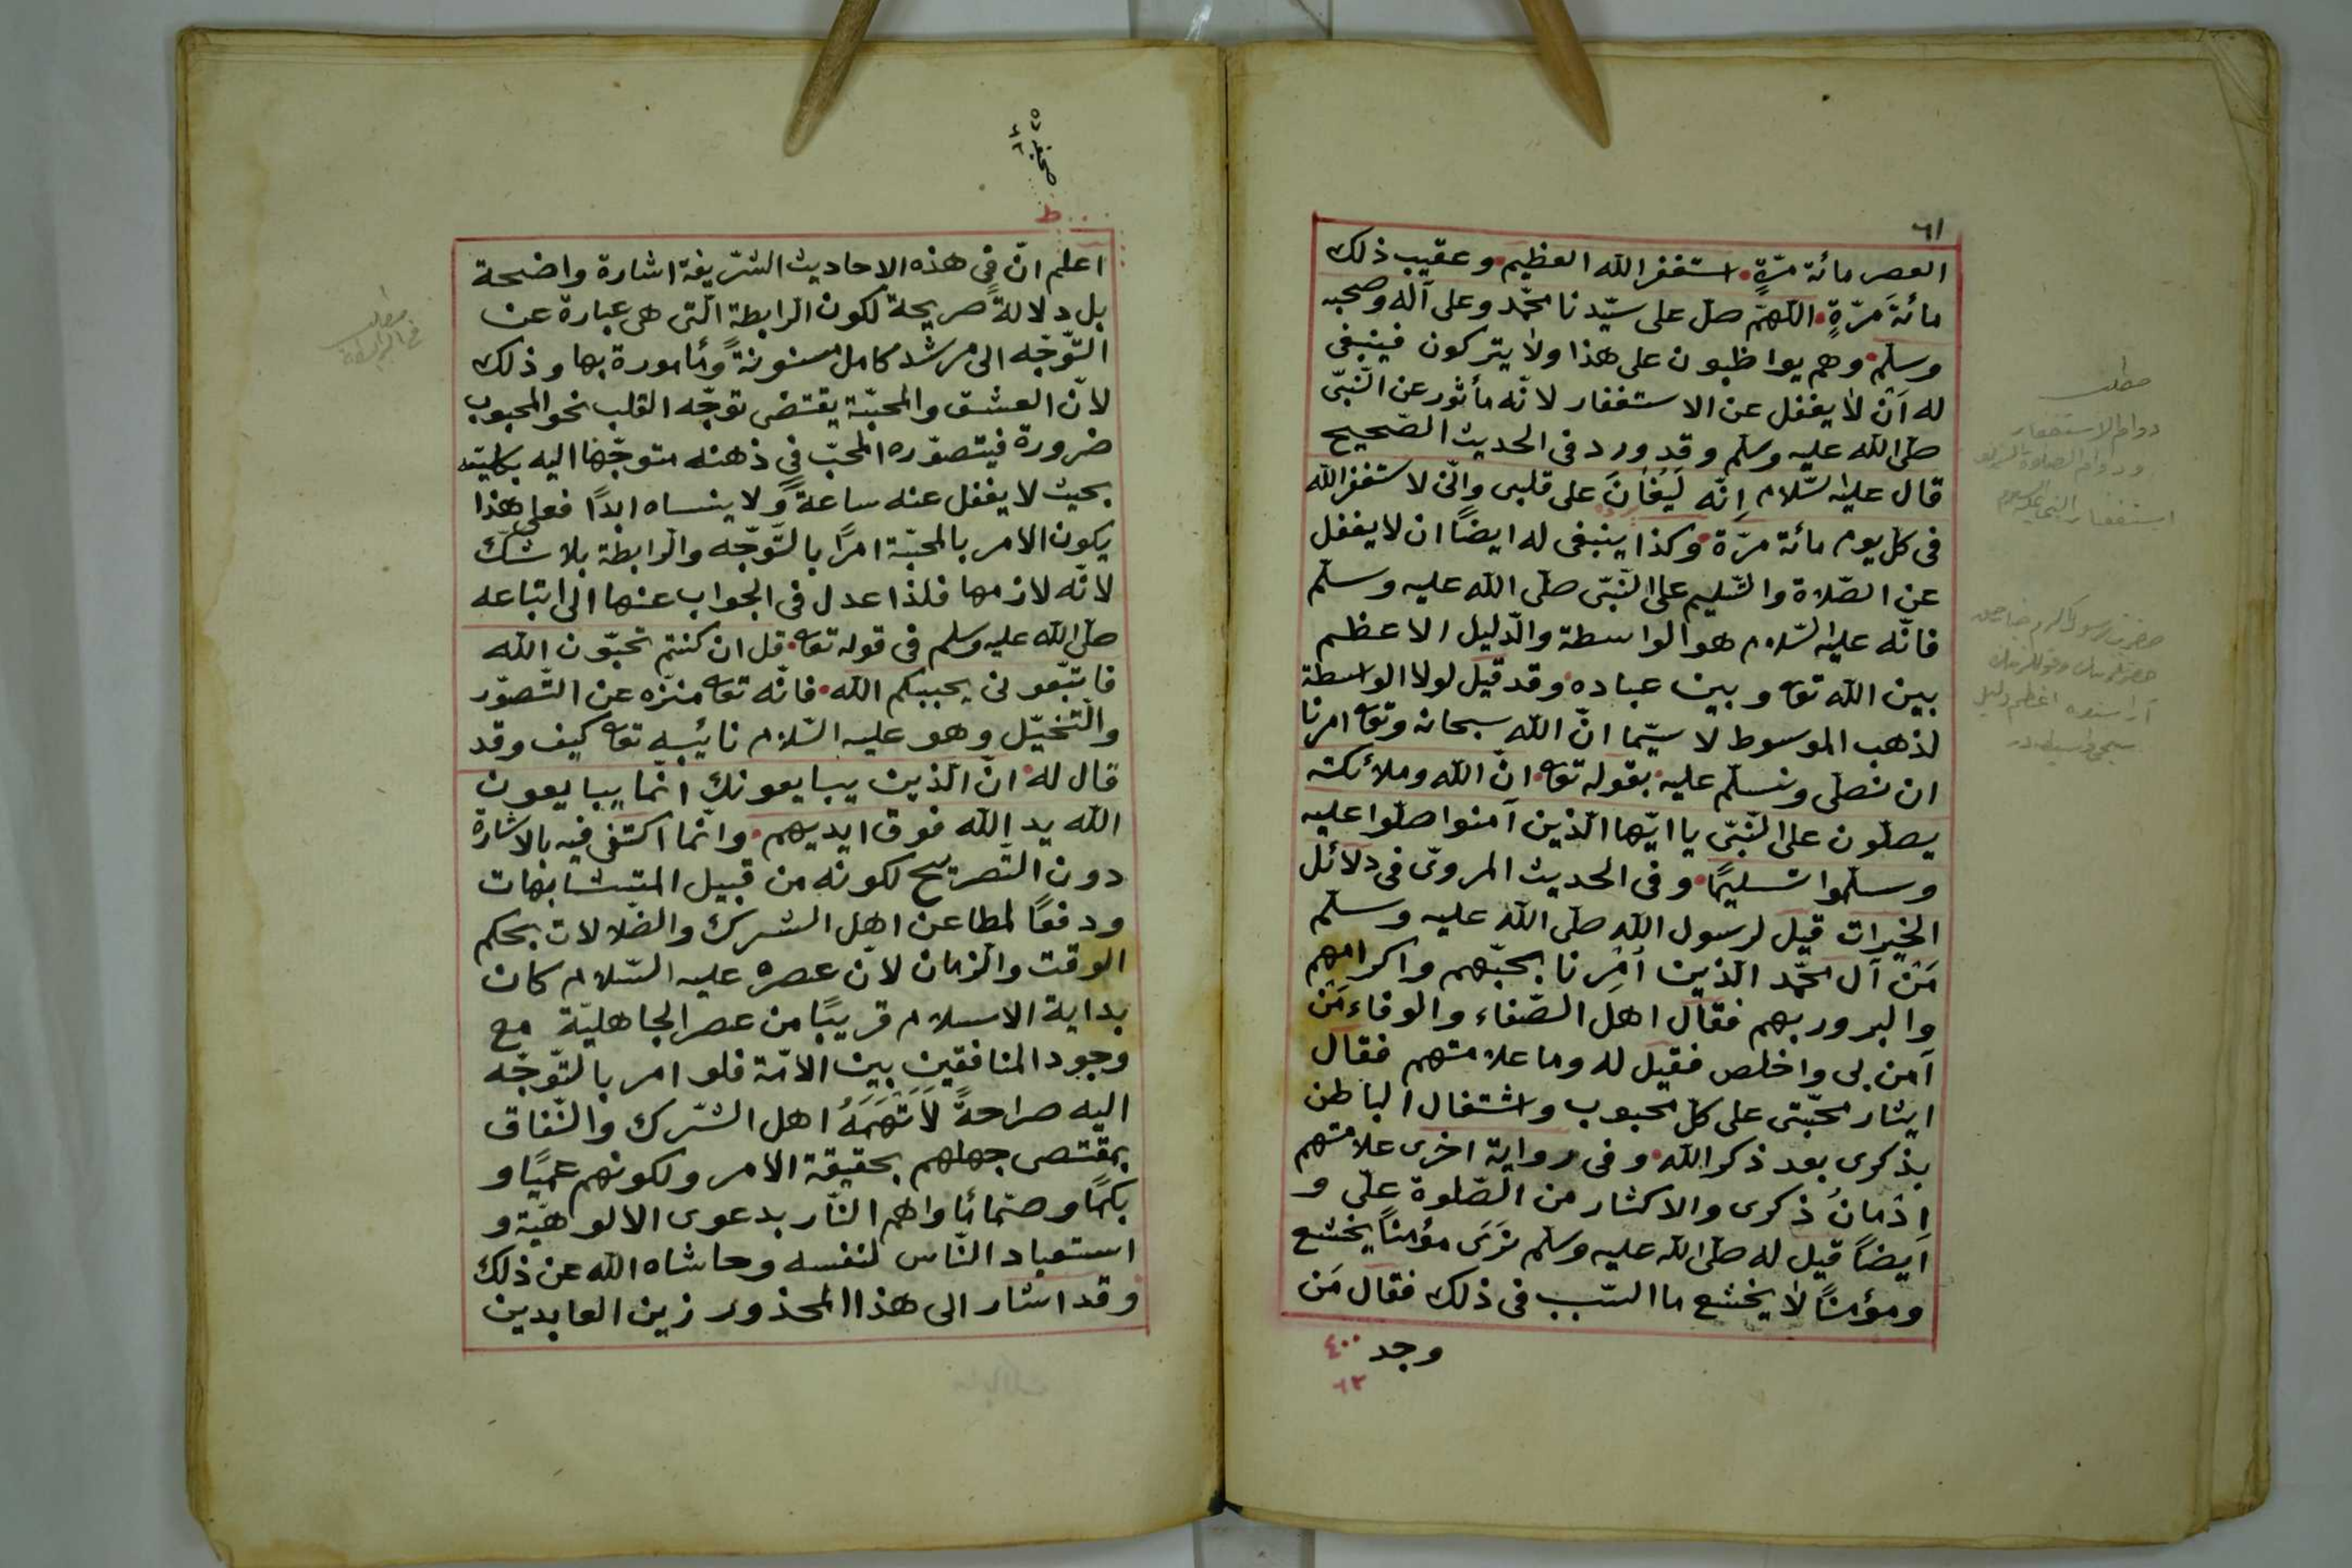 ٦١
العصر مائة مرّةٍ استغفر الله العظيم وعقيب ذلك
مائةَ مَرّةٍ اللهمّ صلّ على سيّدنا محمّد وعلى آله وصحبه
وسلّم وهم يواظبون على هذا ولا يتركون فينبغى
له اَنْ لا يغفل عن الاستغفار لانّه مأثور عن النّبىّ
صلّى الله عليه وسلّم وقد ورد فى الحديث الصّحيح
قال عليه السّلام اِنّه لَيُغَانَ على قلبى وانّى لاستغفر الله
فى كلّ يوم مائة مرّة وكذا ينبغى له ايضًا ان لا يغفل
عن الصّلاة والتّسليم على النّبىّ صلّى الله عليه وسلّم
فانّه عليه السّلام هو الواسطة والدّليل الاعظم
بين الله تعا وبين عباده وقد قيل لولا الواسطة
لذهب الموسوط لا سيّما انّ الله سبحانه وتعا امرنا
ان نصلّى ونسلّم عليه بقوله تعا انّ الله وملائكته
يصلّون على النّبىّ يا ايّها الّذين آمنوا صلّوا عليه
وسلّموا تسليمًا وفى الحديث المروىّ فى دلائل
الخيرات قيل لرسول الله صلّى الله عليه وسلّم
مَنْ آل محمّد الّذين اُمِرنا بحبّهم واكرامهم
والبرور بهم فقال اهل الصّفاء والوفاء مَنْ
آمن بى واخلص فقيل له وما علامتهم فقال
ايثار محبّتى على كلّ محبوب واشتغال الباطن
بذكرى بعد ذكر الله وفى رواية اخرى علامتهم
اِدْمانُ ذكرى والاكثار من الصّلوة علىّ و
اَيضاً قيل له صلّى الله عليه وسلّم نَرَى مؤمناً يخشع
ومؤمناً لا يخشع ما السّبب فى ذلك فقال مَن
وجد ٤٠٠
٦٢
مطلب
دوام الاستغفار
اعلم انّ فى هذه الاحاديث الشّريفة اشارة واضحة
بل دلالةً صريحة لكون الرابطة الّتى هى عبارة عن
التّوجّه الى مرشد كامل مسنونةً ومأمورة بها وذلك
لانّ العشق والمحبّة يقتضى توجّه القلب نحو المحبوب
ضرورة فيتصوّره المحبّ فى ذهنه متوجّهًا اليه بكليّته
بحيث لا يغفل عنه ساعةً ولا ينساه ابدًا فعلى هذا
يكون الامر بالمحبّة امرًا بالتّوجّه والرابطة بلا شكّ
لانّه لازمها فلذا عدل فى الجواب عنها الى اتباعه
صلّى الله عليه وسلم فى قوله تعا قل ان كنتم تحبّون الله
فاتبّعونى يحببكم الله فانّه تعا منزّه عن التّصوّر
والتّخيّل وهو عليه السّلام نائبه تعا كيف وقد
قال له انّ الّذين يبايعونك انّما يبايعون
الله يد الله فوق ايديهم وانّما اكتفى فيه بالاشارة
دون التّصريح لكونه من قبيل المتشابهات
ودفعًا لمطاعن اهل الشرك والضّلالات بحكم
الوقت والزمان لانّ عصره عليه السّلام كان
بداية الاسلام قريبًا من عصر الجاهليّة مع
وجود المنافقين بين الامّة فلو امر بالتّوجّه
اليه صراحةً لَاتّهَمَهُ اهل الشّرك والنّفاق
بمقتضى جهلهم بحقيقة الامر ولكونهم عميًا و
بكمًا وصمًّا
استعباد النّاس لنفسه وحاشاه الله عن ذلك
وقد اشار الى هذا المحذور زين العابدين
مطلب